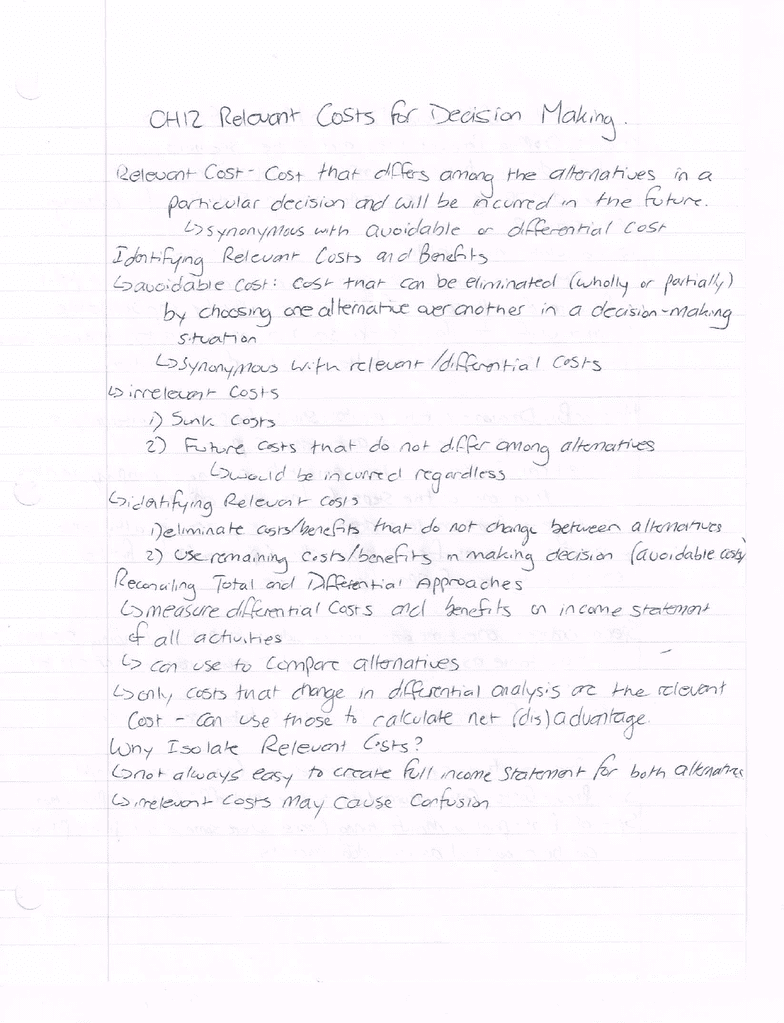 CH12 Relevant Costs for Decision Making.
Relevant Cost - Cost that differs among the alternatives in a
particular decision and will be incurred in the future.
↳synonymous with avoidable or differential cost
Identifying Relevant Costs and Benefits
↳avoidable cost: cost that can be eliminated (wholly or partially)
by choosing one alternative over another in a decision-making
situation
↳synonymous with relevant/differential costs
↳irrelevant costs
1) Sunk costs
2) Future costs that do not differ among alternatives
↳would be incurred regardless
↳identifying Relevant costs
1) eliminate costs/benefits that do not change between alternatives
2) use remaining costs/benefits in making decision (avoidable costs)
Reconciling Total and Differential Approaches
↳measure differential costs and benefits on income statement
of all activities
↳ can use to compare alternatives
↳only costs that change in differential analysis are the relevant
cost - can use those to calculate net (dis)advantage.
Why Isolate Relevant Costs?
↳not always easy to create full income statement for both alternatives
↳irrelevant costs may cause confusion